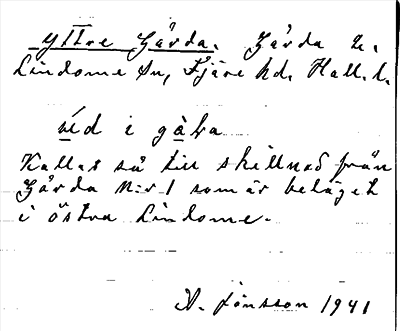 Yttre Gårda. Gårda 2.
Lindome sn, Fjäre hd. Hall. l.
i
Kallas så till skillnad från
Gårda N:r 1 som är beläget
i östra Lindome.
A. Jönsson 1941